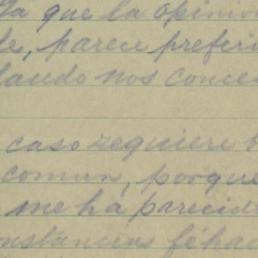 Ya que la opinion
le, parece preferi
dando nos conce
caso requiere
comun, porque
me ha parecid
nstancias fehac